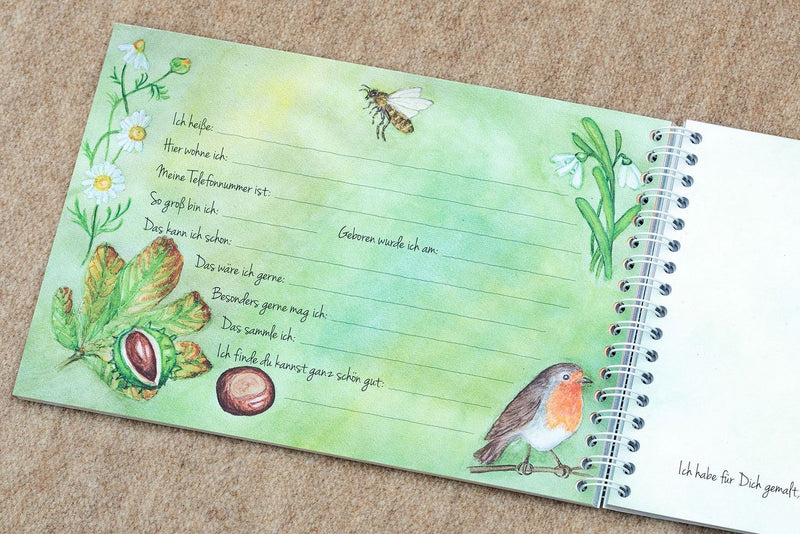 Ich heiße:
Hier wohne ich:
Meine Telefonnummer ist:
So groß bin ich:
Geboren wurde ich am:
Das kann ich schon:
Das wäre ich gerne:
Besonders gerne mag ich:
Das sammle ich:
Ich finde du kannst ganz schön gut:
Ich habe für Dich gemalt,